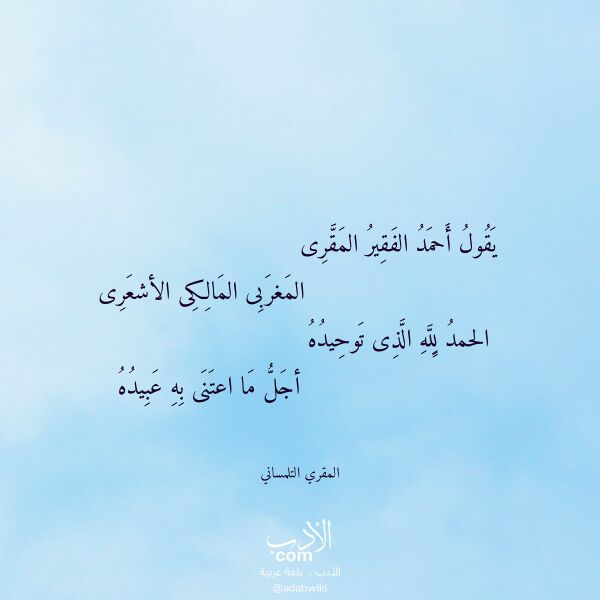 يَقُولُ أَحمَدُ الفَقِيرُ المَقَّرِى
المَغرَبِى المَالِكِى الأشعَرِى
الحمدُ لِلَّهِ الَّذِى تَوحِيدُهُ
أجَلُّ مَا اعتَنَى بِهِ عَبِيدُهُ
المقري التلمساني
الأدب
com
الأدب .. بلغة عربية
@adabwiki